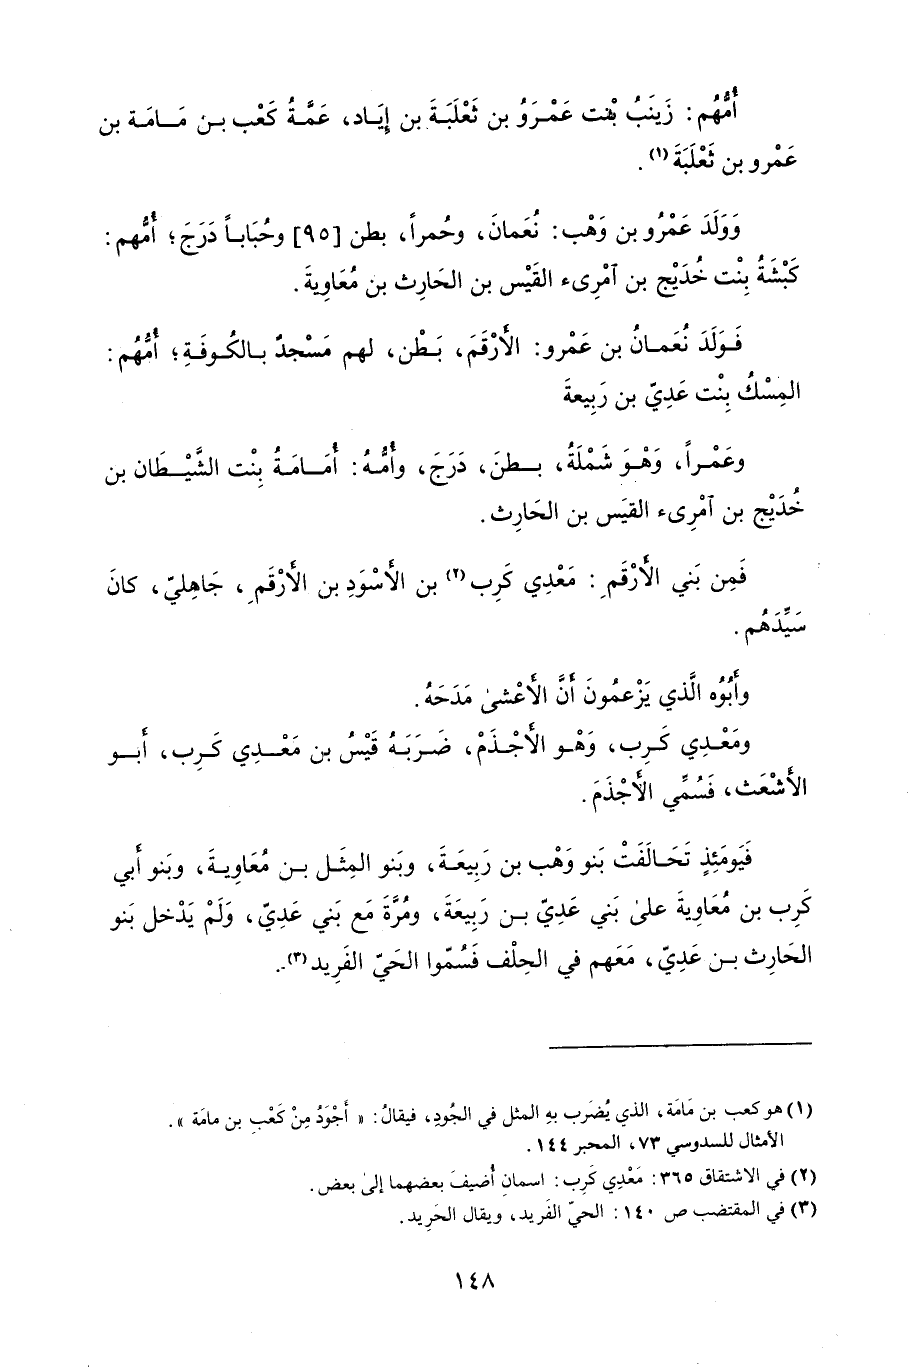 أُمُّهُم: زَينَبُ بْنت عَمْرَوُ بن ثَعْلَبَةَ بن إيَاد، عَمَّةُ كَعْب بن مَامَة بن
عَمْرو بن ثَعْلَبَةَ (١).
وَوَلَدَ عَمْرُو بن وَهْب: نُعَمانَ، وحُمراً، بطن [٩٥] وحُبَاباً دَرَجَ؛ أُمُّهم:
كَبْشَةُ بِنْت خُدَيْج بن آمْرىء القَيْس بن الحَارِث بن مُعَاوِيةَ.
فَوَلَدَ نُعَمانُ بن عَمْرو: الأَرْقَمَ، بَطْن، لهم مَسْجدٌ بالكُوفَةِ؛ أُمُّهُم:
المِسْكُ بِنْت عَدِيّ بن رَبِيعةَ
وعَمْراً، وَهْوَ شَمْلَةُ، بطنَ، دَرَجَ، وأُمُّهُ: أُمَامَةُ بِنْت الشَّيْطَان بن
خُدَيْج بن آمْرِىء القيَس بن الحَارِث.
فَمِن بَني الأَرْقَمِ: مَعْدِي كَرِب (٢) بن الأسْوَدِ بن الأَرْقَمِ، جَاهِليّ، كانَ
سَيِّدَهُم.
وأَبُوُه الَّذي يَزْعمُونَ أَنَّ الأَعْشىٰ مَدَحَهُ.
ومَعْدِي كَرِب، وَهْو الأَجْذَمْ، ضَرَبَهُ قَيْسُ بن مَعْدِي كَرِب، أَبو
الأَشْعَث، فَسُمِّي الأَجْذَمَ.
فَيَومَئِذٍ تَحَالَفَتْ بَنو وَهْب بن رَبِيعَةَ، وبَنو المِثَل بن مُعَاوِيةَ، وبَنو أَبي
كَرِب بن مُعَاوِيةَ علىٰ بَني عَدِيّ بن رَبِيعَةَ، ومُرَّةَ مَع بَني عَدِيّ، وَلَمْ يَدْخل بَنو
الحَارِث بن عَدِيّ، مَعَهم في الحِلْف فَسُمّوا الحَيّ الفَرِيد (٣).
(١) هو كعب بن مَامَة، الذي يُضرَب بهِ المثل في الجُودِ، فيقالُ: « أَجْوَدُ مِنْ كَعْبِ بن مامَة ».
الأمثال للسدوسي ٧٣، المحبر ١٤٤.
(٢) في الاشتقاق ٣٦٥: مَعْدِي كَرِب: اسمانِ أُضيفَ بعضهما إلىٰ بعض.
(٣) في المقتضب ص ١٤٠: الحيّ الفَرِيد، ويقال الحَرِيد.
١٤٨